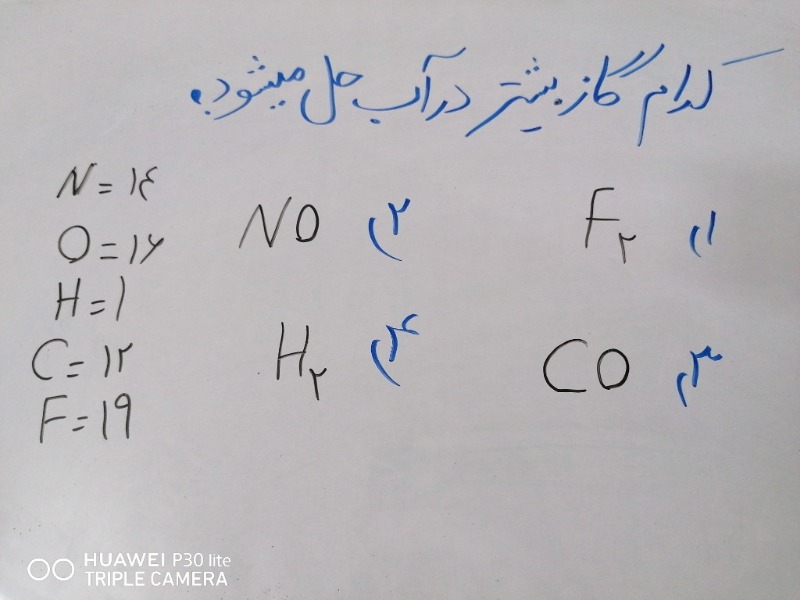 کدام گاز بیشتر در آب حل میشود؟
۱) F₂
۲) NO
۳) CO
۴) H₂
N = ۱۴
O = ۱۶
H = ۱
C = ۱۲
F = ۱۹
HUAWEI P30 lite
TRIPLE CAMERA